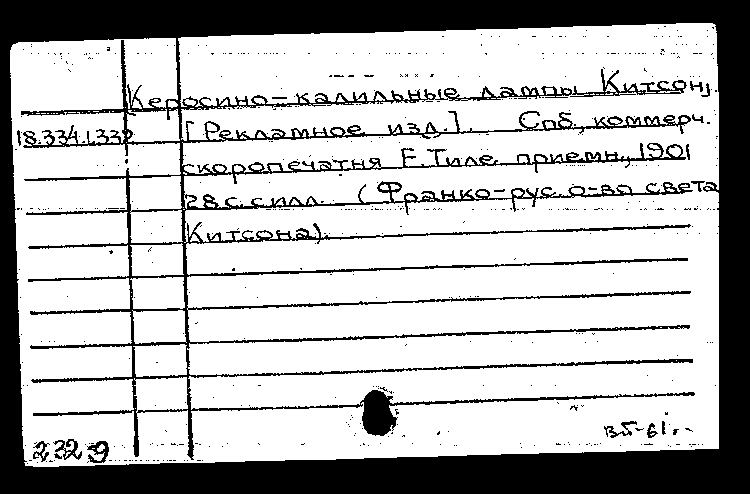 Керосино-калильные лампы Китсон,
18.334.1.332 [Рекламное изд.]. Спб, коммерч.
скоропечатня Е. Тиле приемн., 1901
28 с. с илл. (Франко-рус. о-во света
Китсона).
232 9
ВБ-61г.